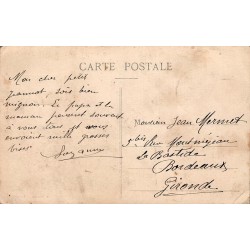 CARTE POSTALE
Mon cher petit
Jeannot, sois bien
mignon. Le papa et la
maman pensent souvent
à vous deux et vous
envoient mille grosses
bises
Monsieur Jean Mermet
5 bis Rue
La Bastide
Bordeaux
Gironde